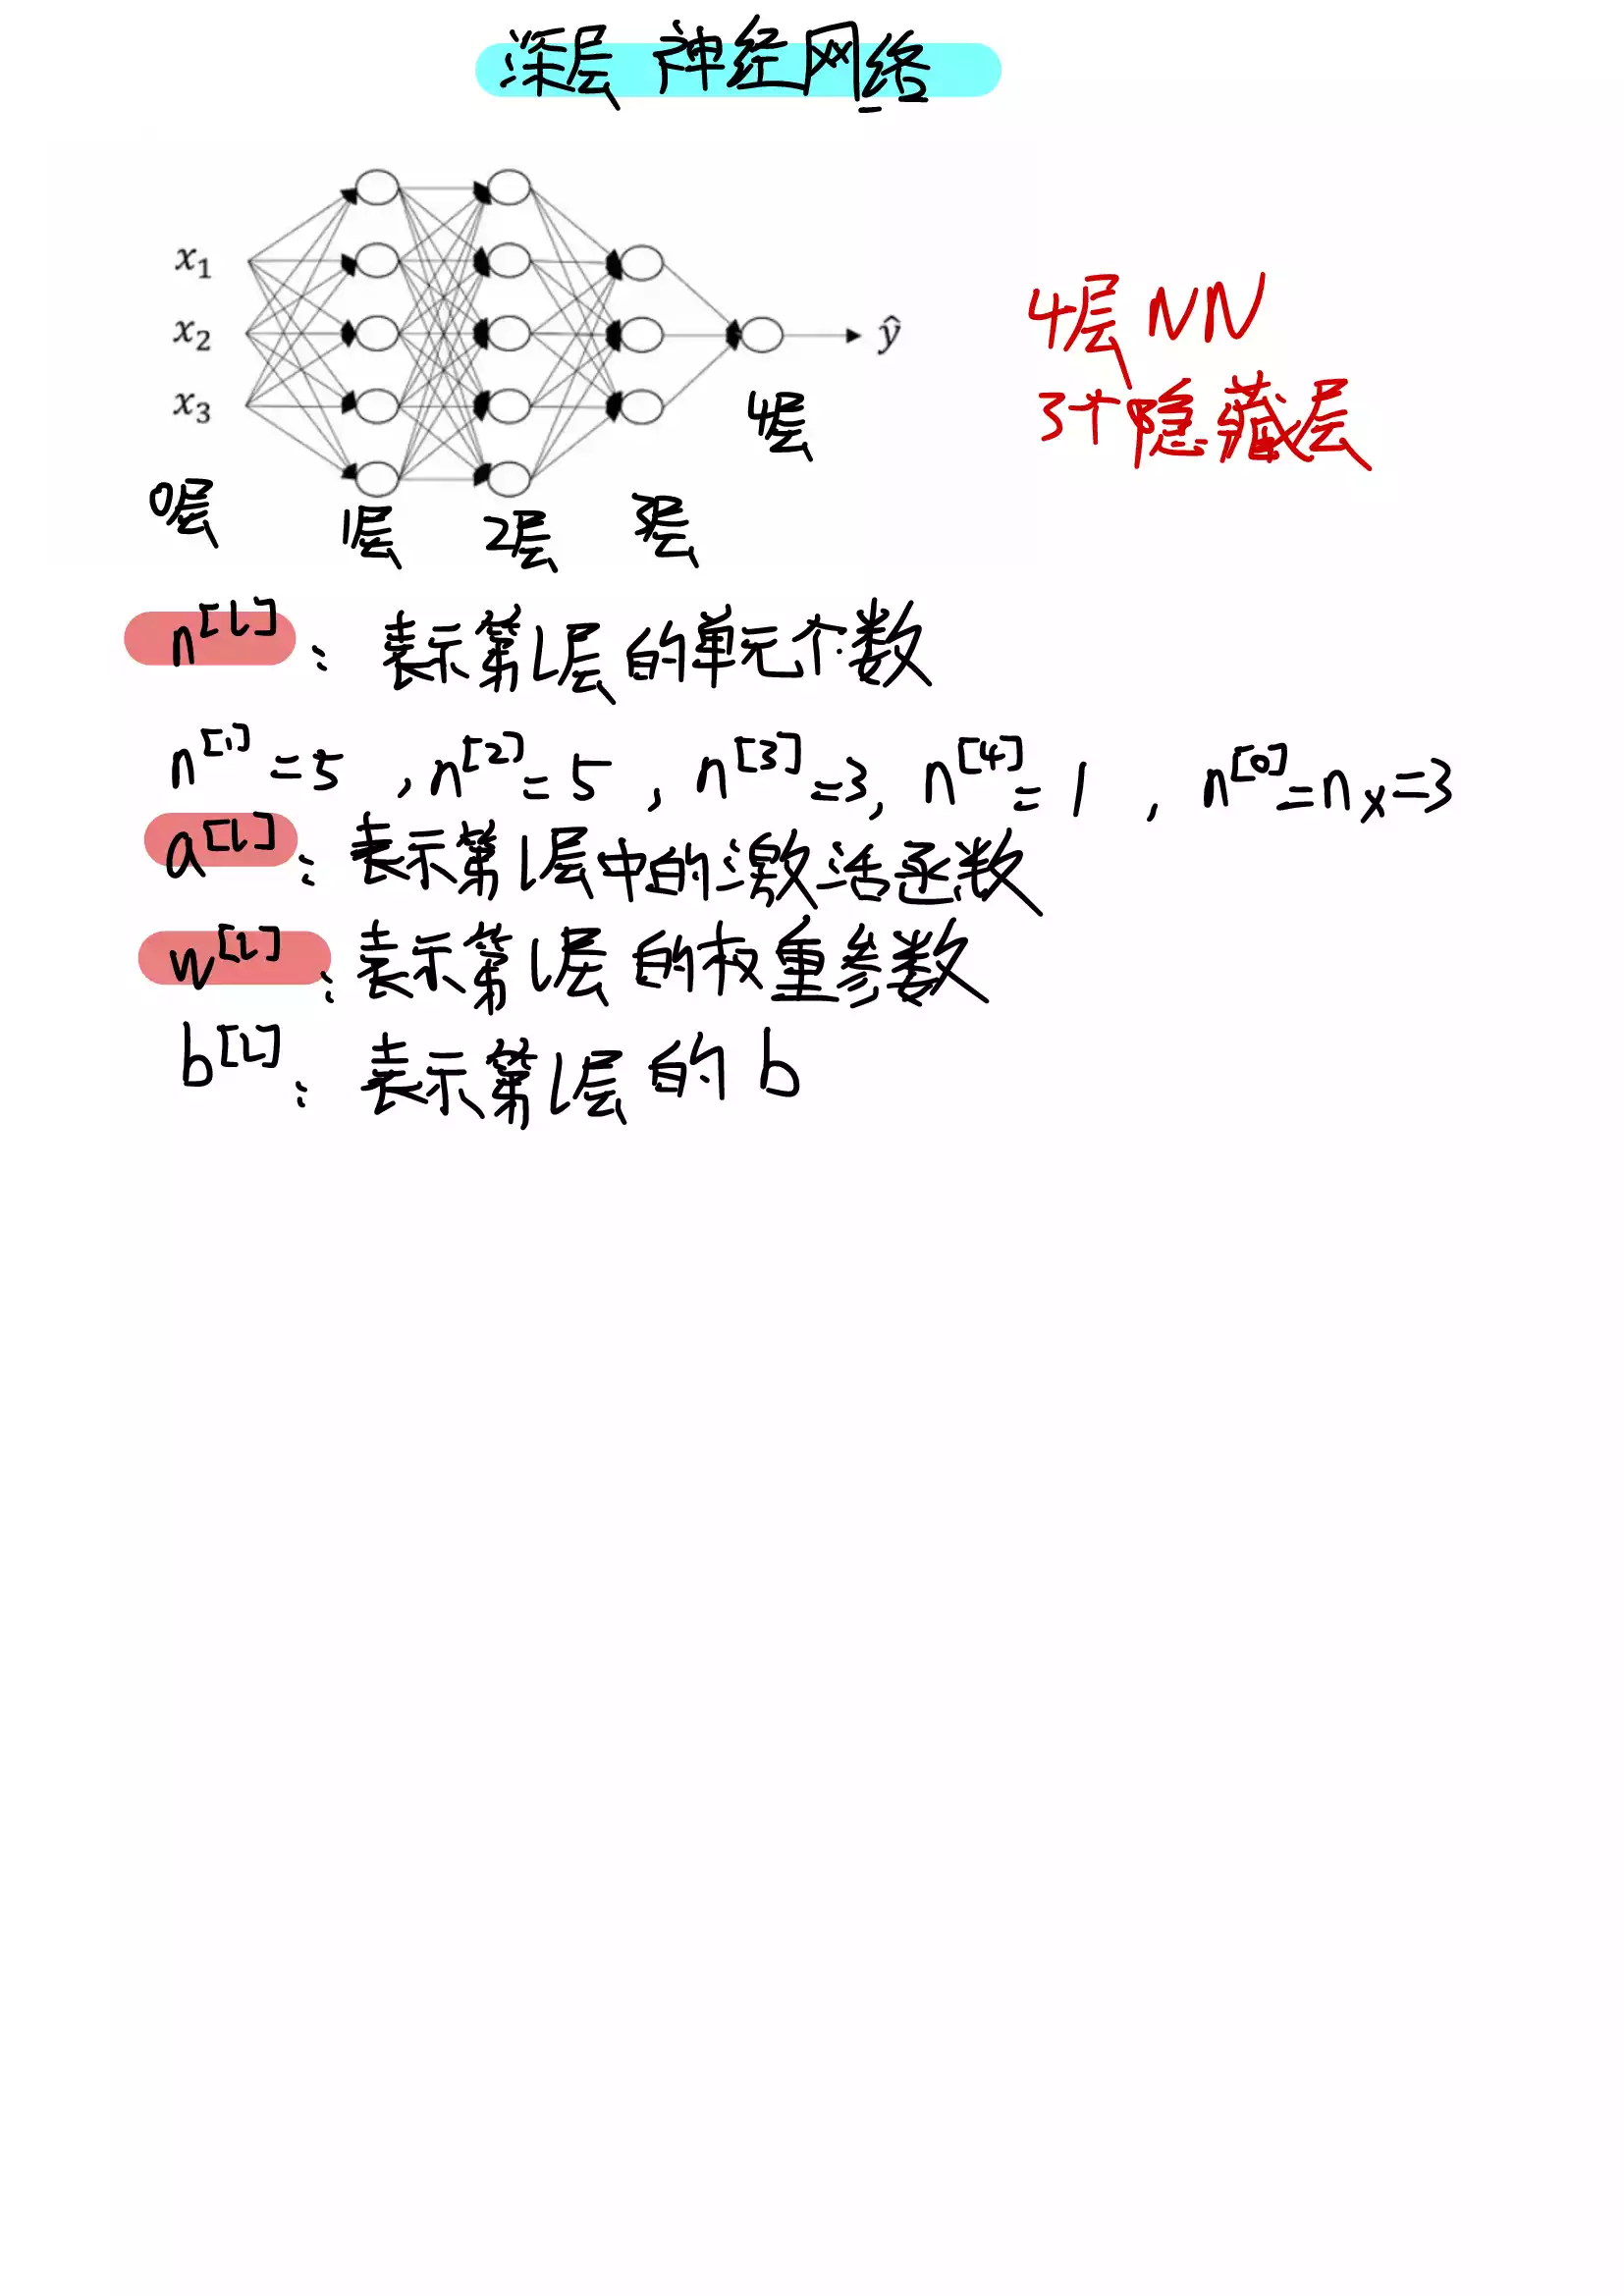 深层 神经网络
x₁
x₂
x₃
ŷ
4层NN
3个隐藏层
0层 1层 2层 3层 4层
n^[l]：表示第l层的单元个数
n^[1]=5 , n^[2]=5 , n^[3]=3, n^[4]=1 , n^[0]=nₓ=3
a^[l]：表示第l层中的激活函数
w^[l]：表示第l层的权重参数
b^[l]：表示第l层的b